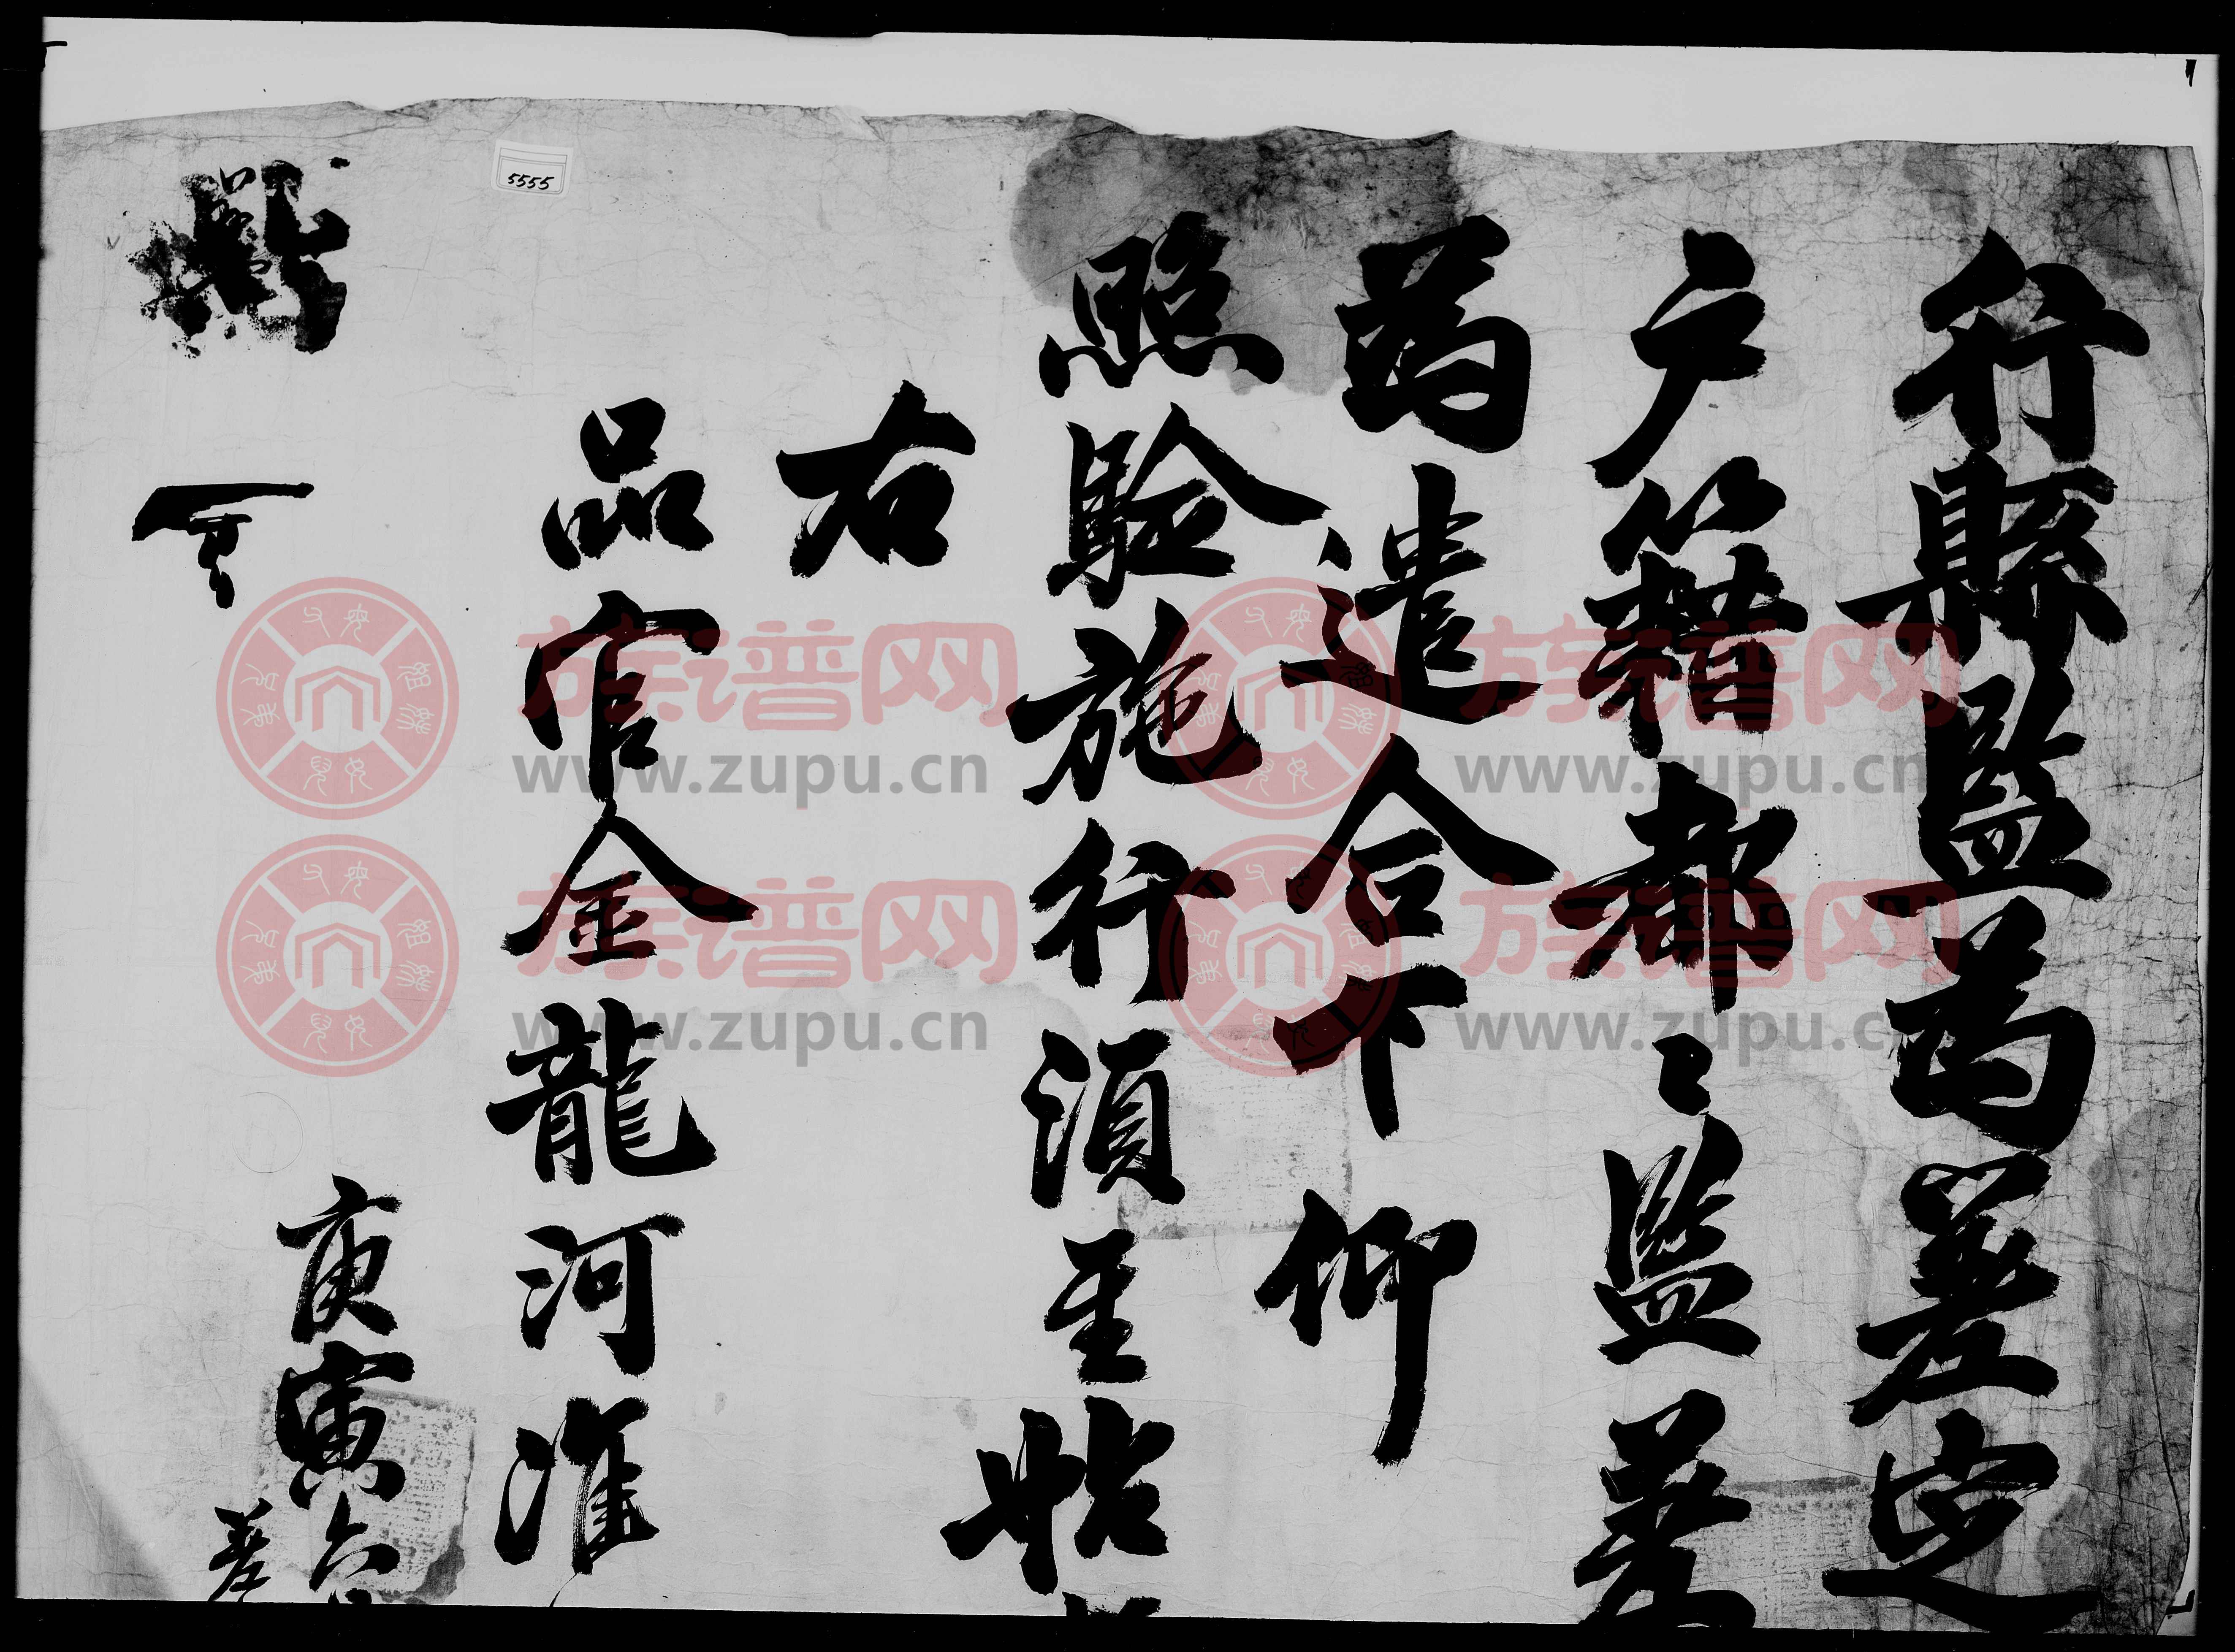 行縣監爲差定
户籍都〻監差
爲遣合下仰
照驗施行須至帖
右
品官金龍河准
庚寅六
差
5555
族谱网
www.zupu.cn
族谱网
www.zupu.cn
族谱网
www.zupu.cn
族谱网
www.zupu.cn